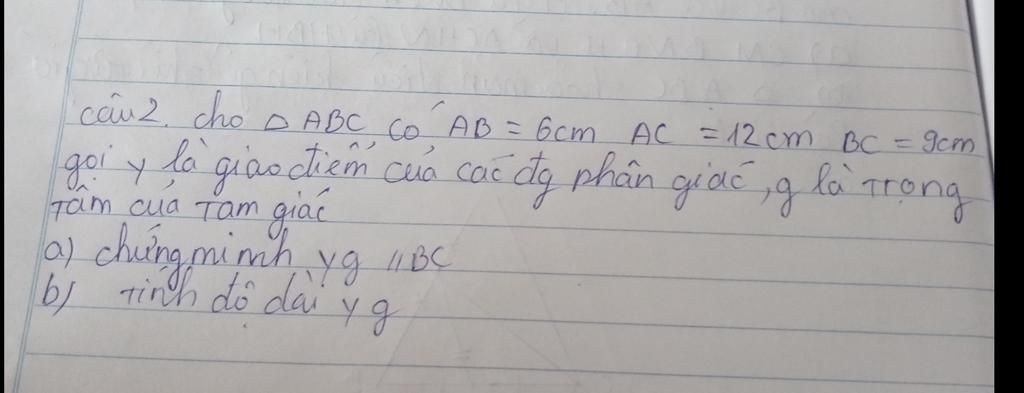 câu 2. cho △ ABC, có AB = 6cm AC = 12cm BC = 9cm
gọi y là giao điểm của các đg phân giác, g là trọng
tâm của Tam giác
a) chứng minh yg // BC
b) tính độ dài yg